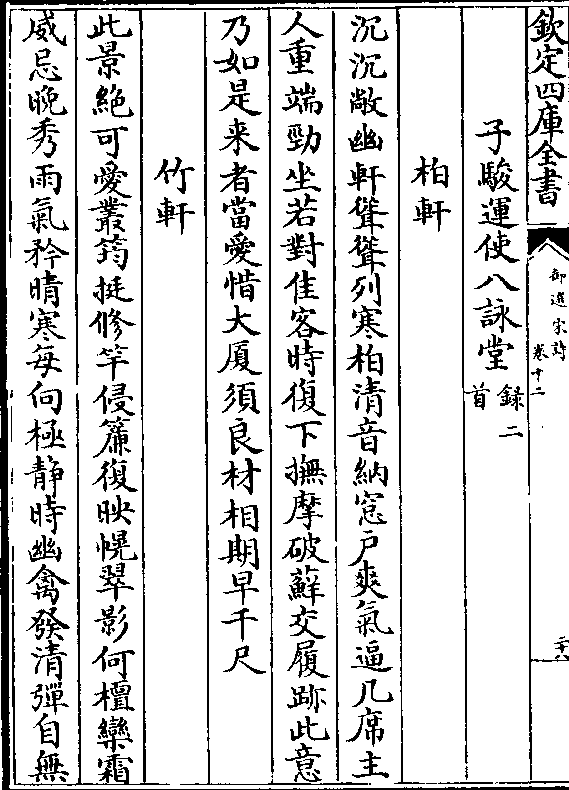 欽定四庫全書
御選宋詩
卷十二
二十八
子駿運使八詠堂
錄二
首
柏軒
沉沉敞幽軒聳聳列寒柏清音納窓戶爽氣逼几席主
人重端勁坐若對佳客時復下撫摩破蘚交履跡此意
乃如是来者當愛惜大厦須良材相期早千尺
竹軒
此景絶可愛叢筠挺修竿侵簾復映幌翠影何檀欒霜
威忌晩秀雨氣矜晴寒每向極静時幽禽發清彈自無